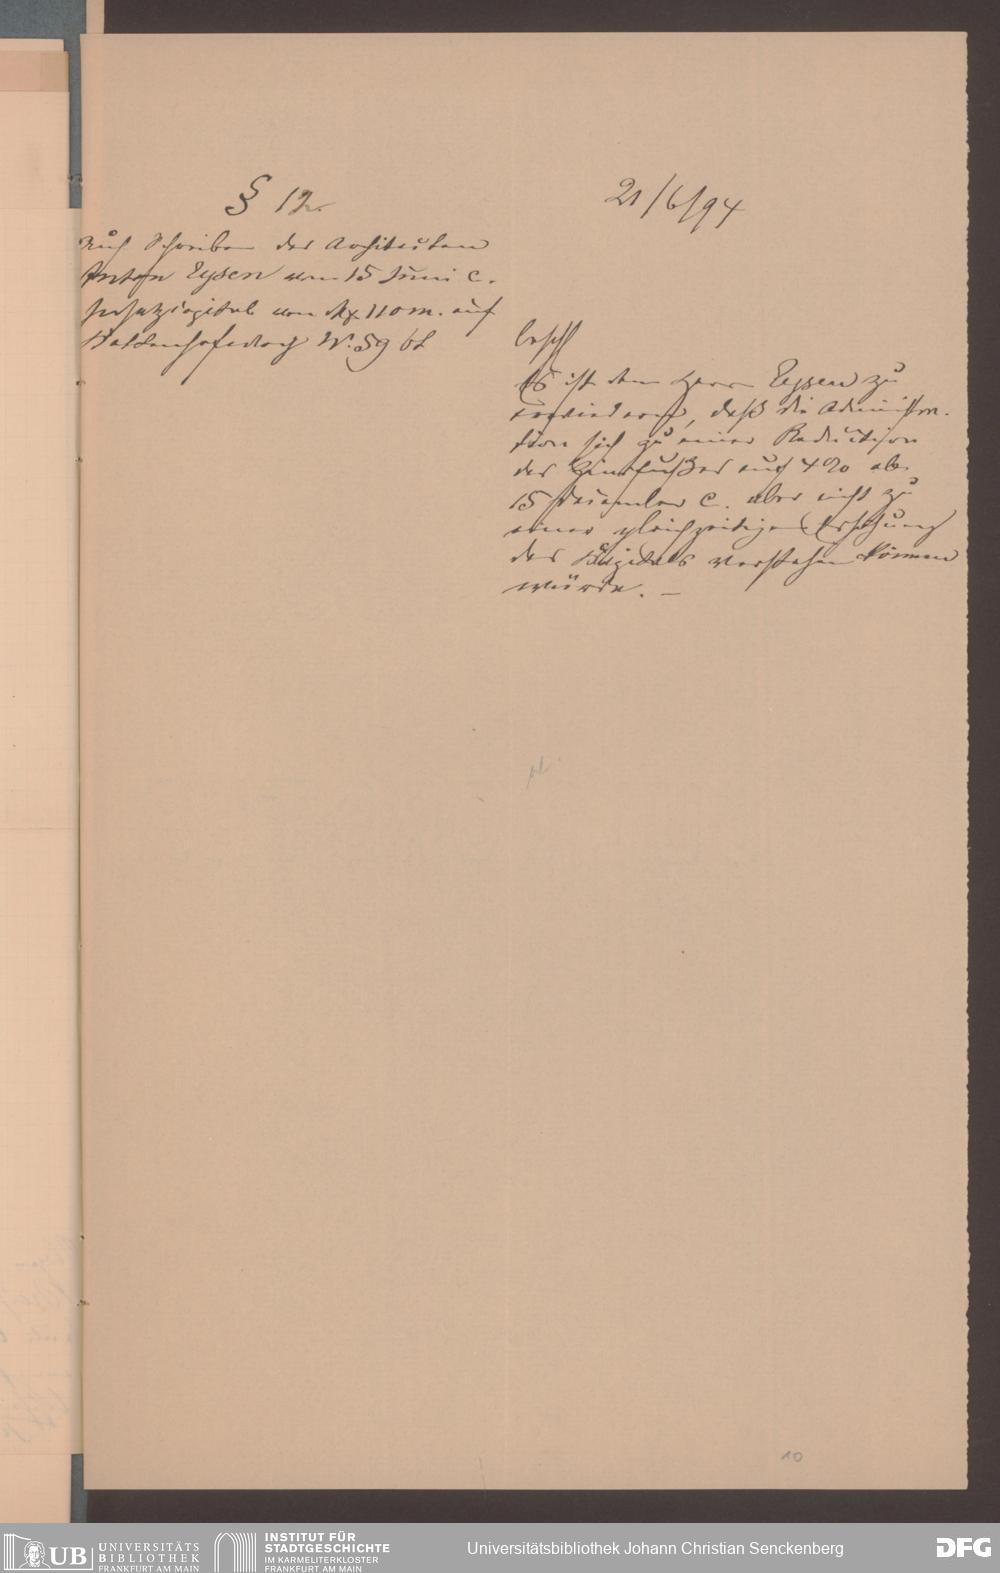 § 12.
Auf Schreiben des Architecten
Anton Eysen vom 15 Juni c.
Insatzcapital von Mk 110 m. auf
N. 59 bl
21/6/94
beschl
Es ist dem Herrn Eysen zu
erwiedern, daß die Administra-
tion sich zu einer Reduction
des Zinsfußes auf 4 % ab
15 Dezember c. aber nicht zu
einer gleichzeitigen Erhöhung
des Kapitals verstehen können
würde. —
10
UB UNIVERSITÄTS
BIBLIOTHEK
FRANKFURT AM MAIN
INSTITUT FÜR
STADTGESCHICHTE
IM KARMELITERKLOSTER
FRANKFURT AM MAIN
Universitätsbibliothek Johann Christian Senckenberg
DFG